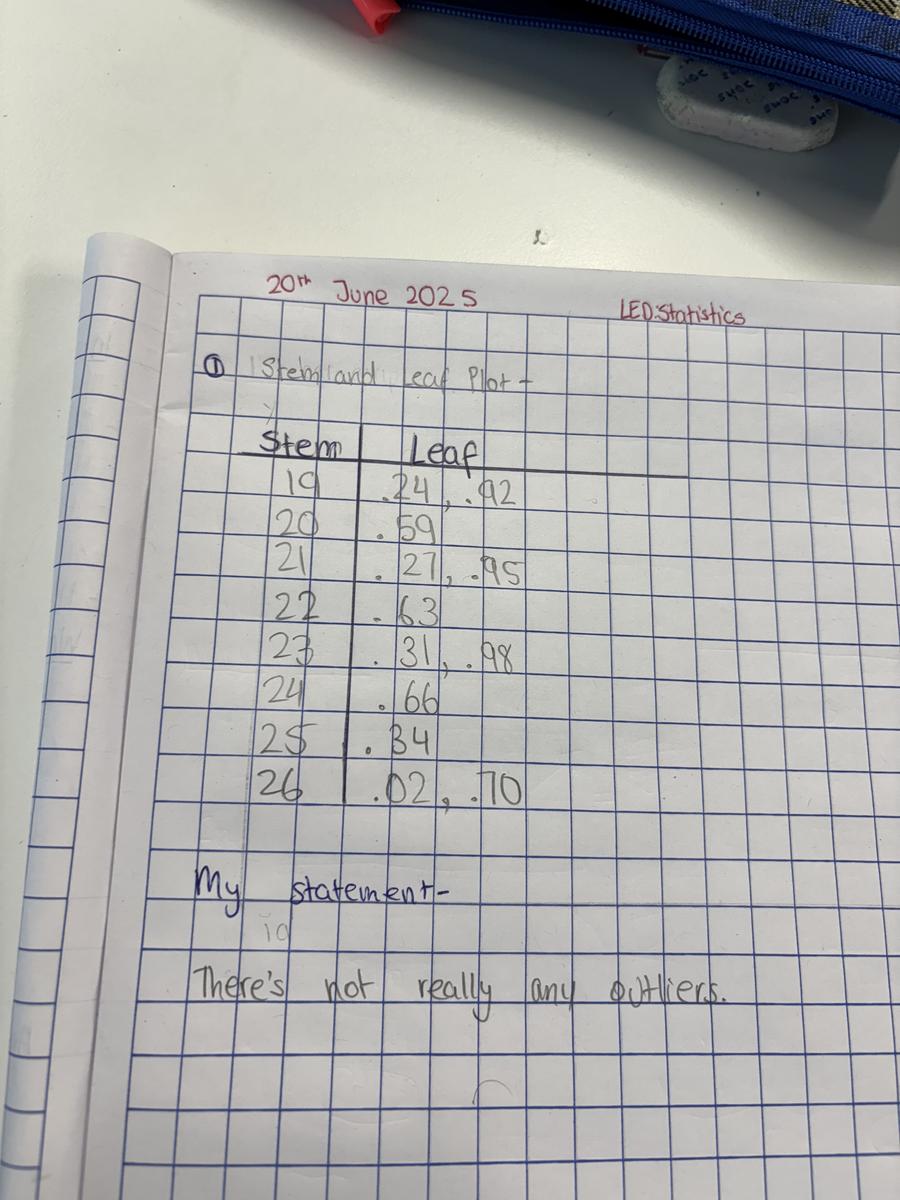 20th June 2025 LED:Statistics
① Stem and Leaf Plot -
Stem Leaf
19 .24, .92
20 .59
21 .27, .95
22 .63
23 .31, .98
24 .66
25 .34
26 .02, .70
My statement-
There's not really any outliers.